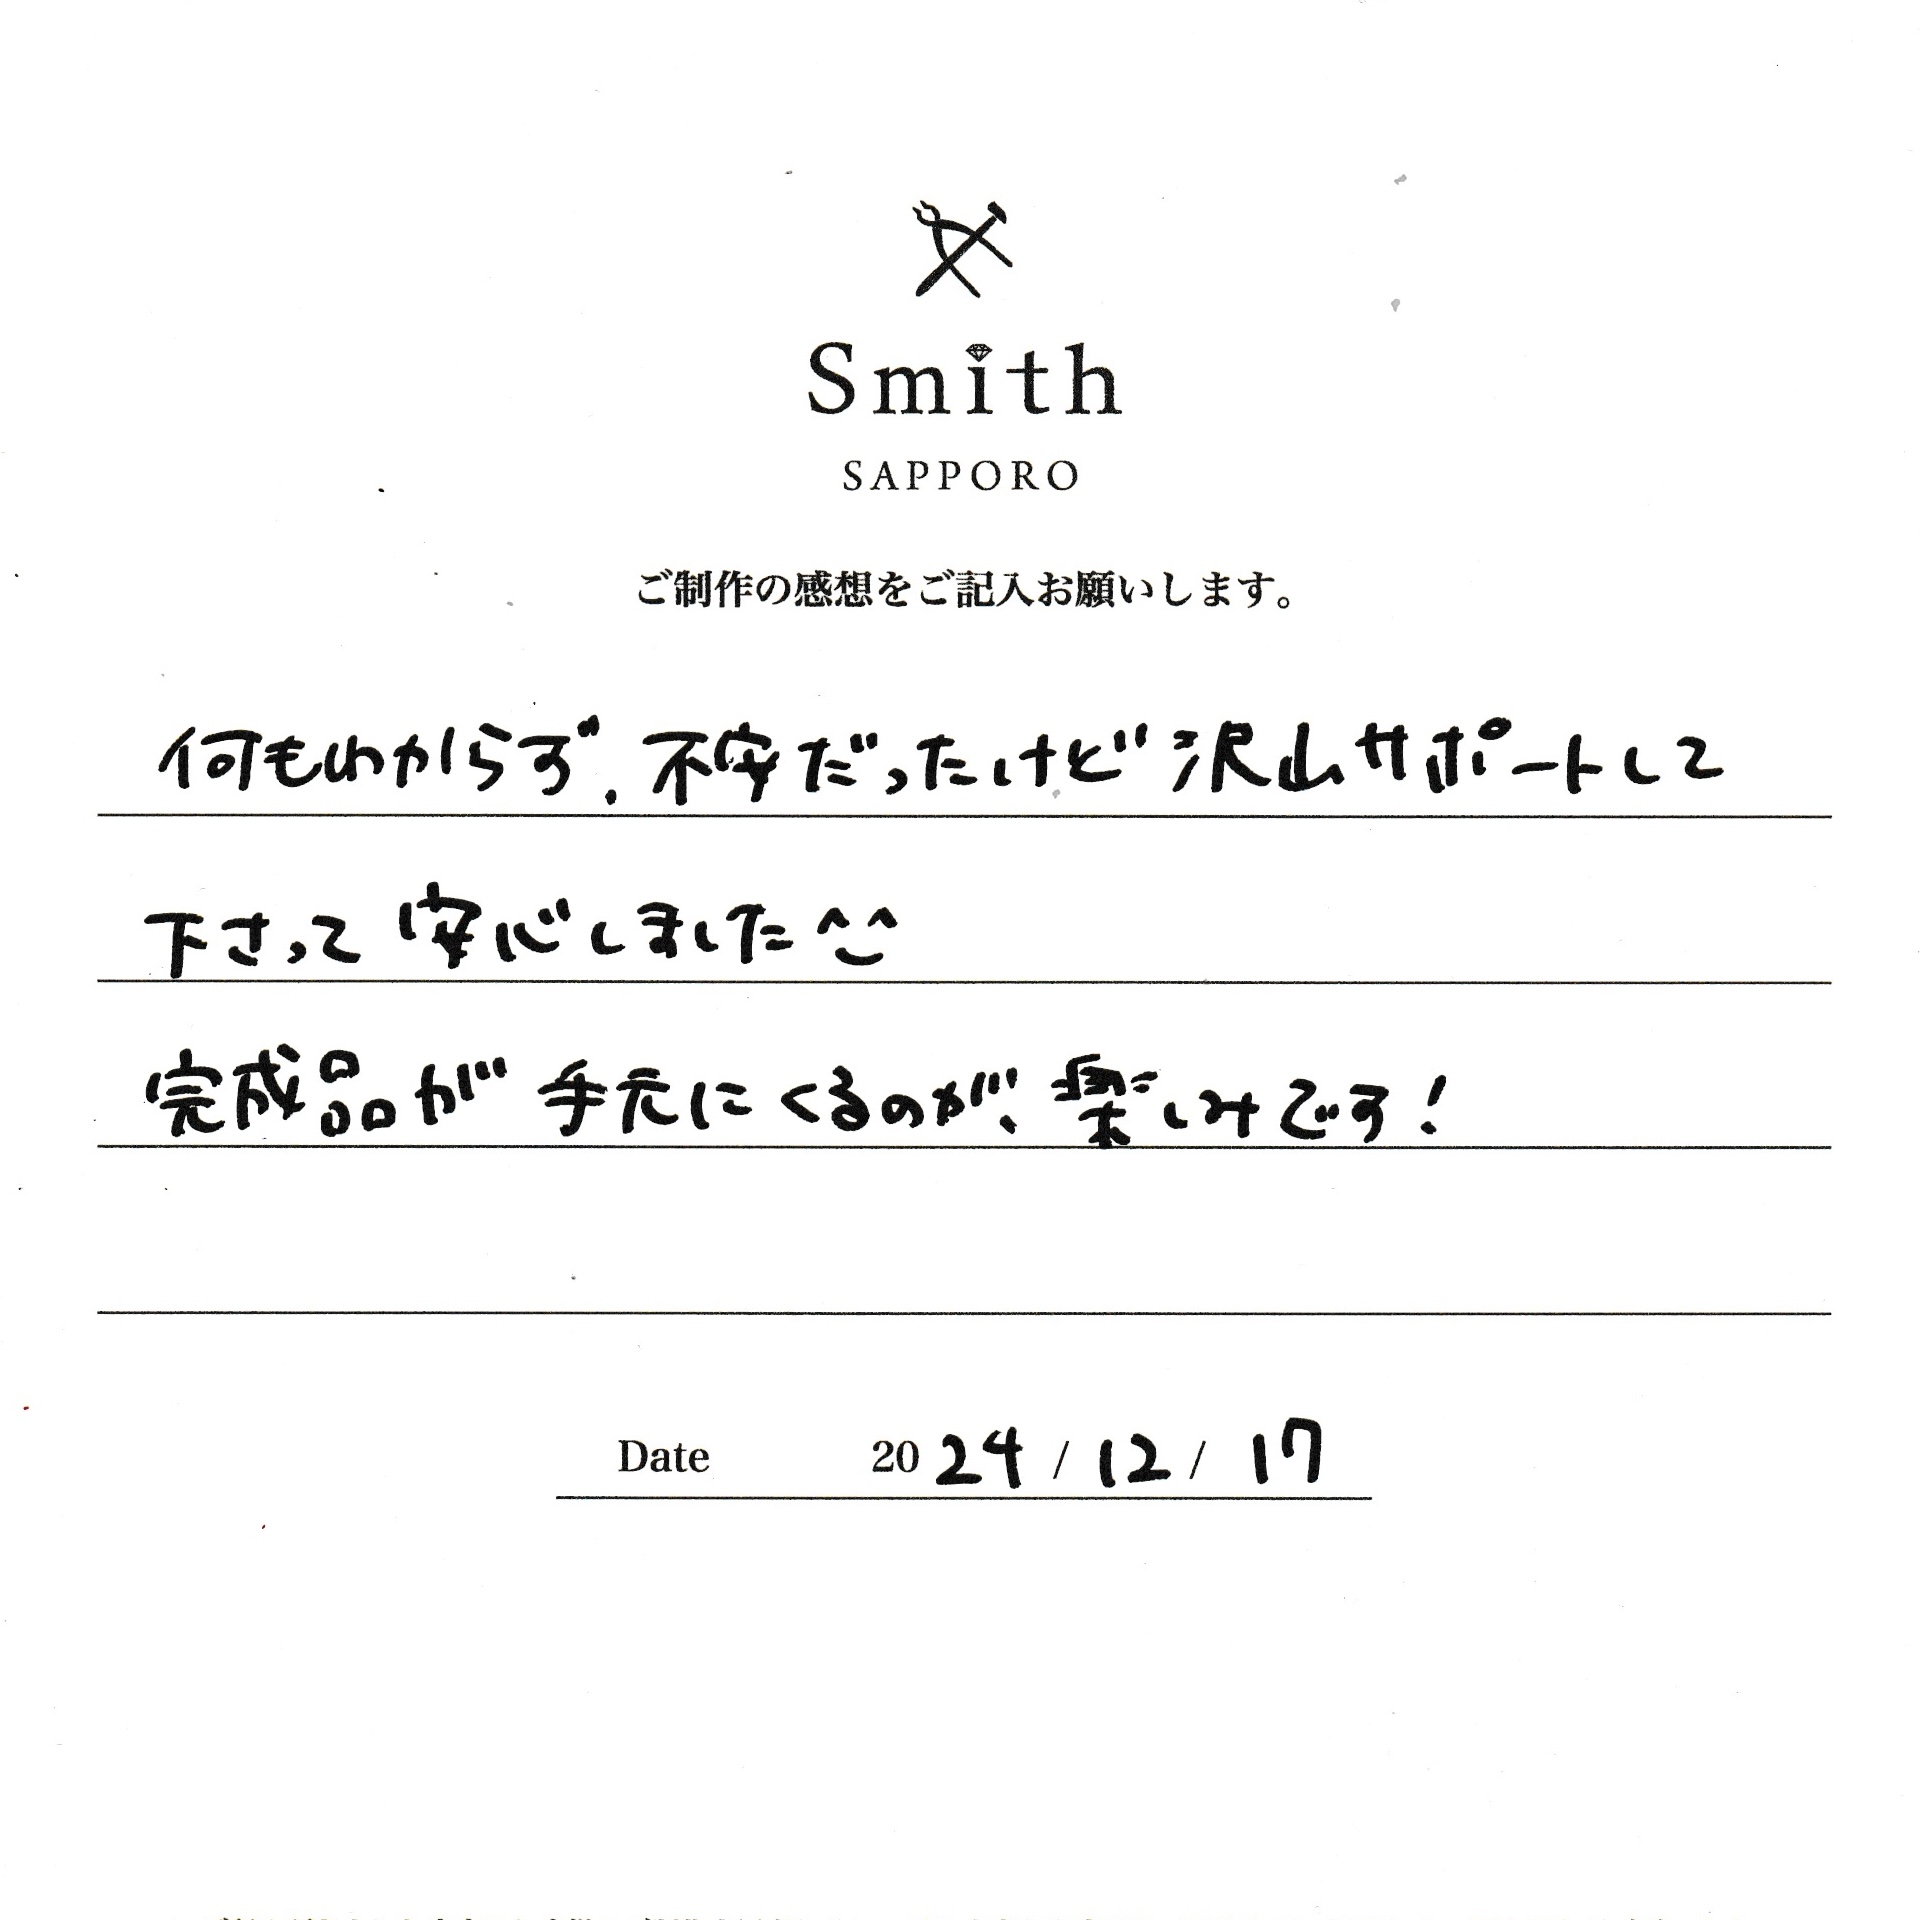 Smith
SAPPORO
ご制作の感想をご記入お願いします。
何もわからず、不安だったけど沢山サポートして
下さって安心しました^^
完成品が手元にくるのが、楽しみです！
Date 2024/12/17